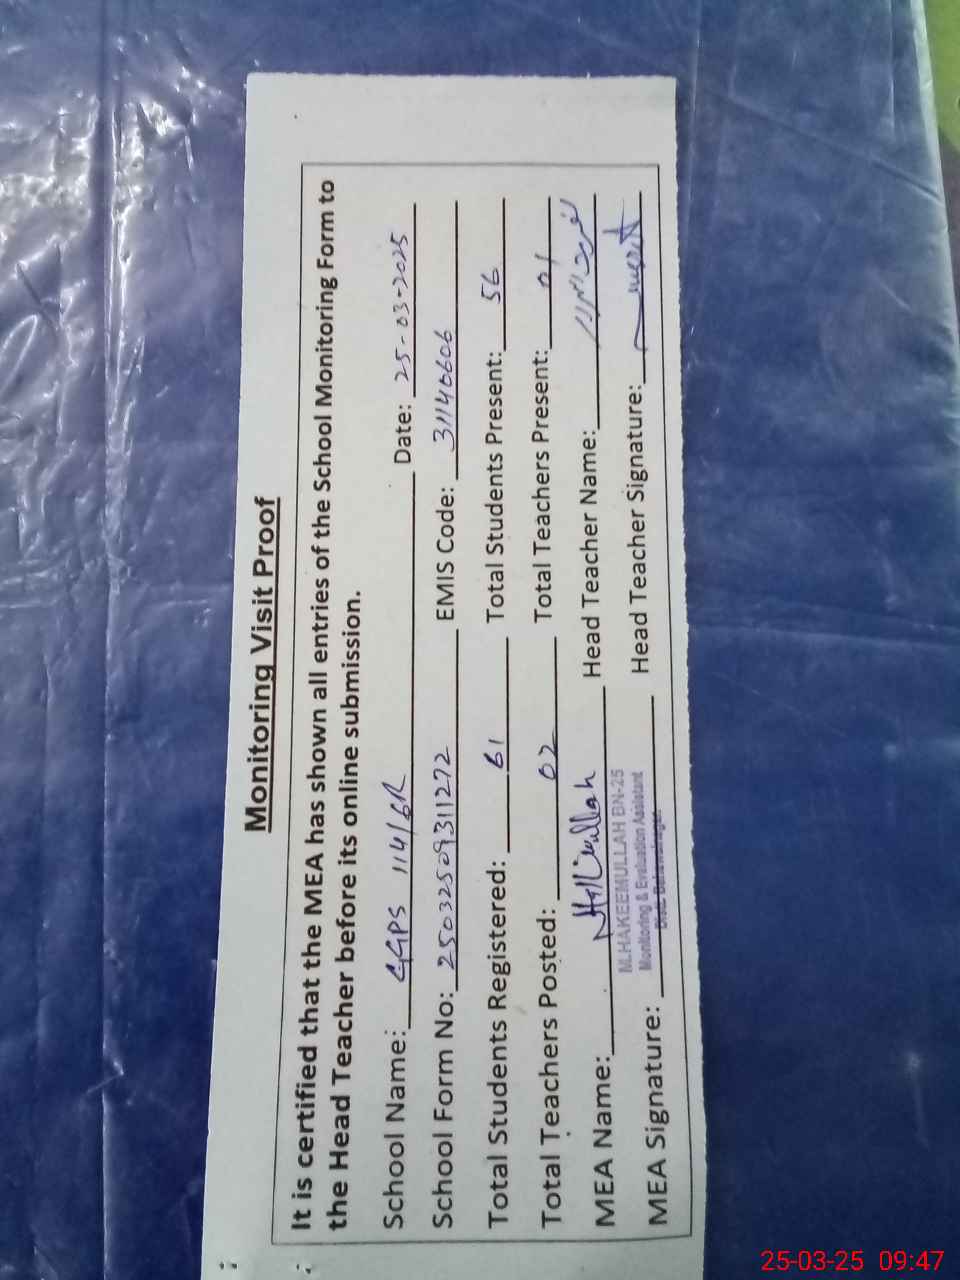 Monitoring Visit Proof
It is certified that the MEA has shown all entries of the School Monitoring Form to
the Head Teacher before its online submission.
School Name: GGPS 114/6R Date: 25-03-2025
School Form No: 25032509311272 EMIS Code: 31140606
Total Students Registered: 61 Total Students Present: 56
Total Teachers Posted: 02 Total Teachers Present: 01
MEA Name: Head Teacher Name:
M.HAKEEMULLAH BN-25
Monitoring & Evaluation Assistant
Distt. Bahawalnagar
MEA Signature: Head Teacher Signature:
25-03-25 09:47